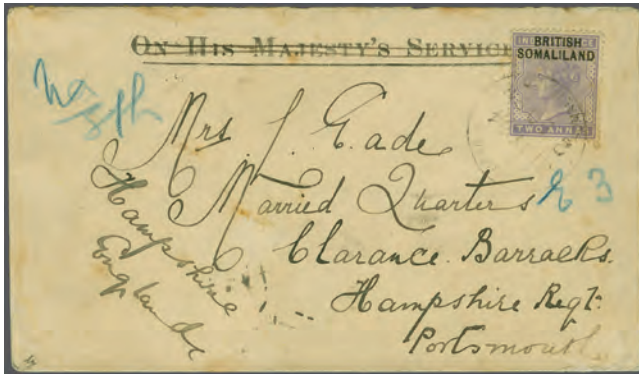 ON HIS MAJESTY'S SERVICE
BRITISH
SOMALILAND
TWO ANNAS
Mrs J. Eade
Married Quarters E 3
Clarance Barracks.
Hampshire Regt:
Portsmouth
Hampshire
England